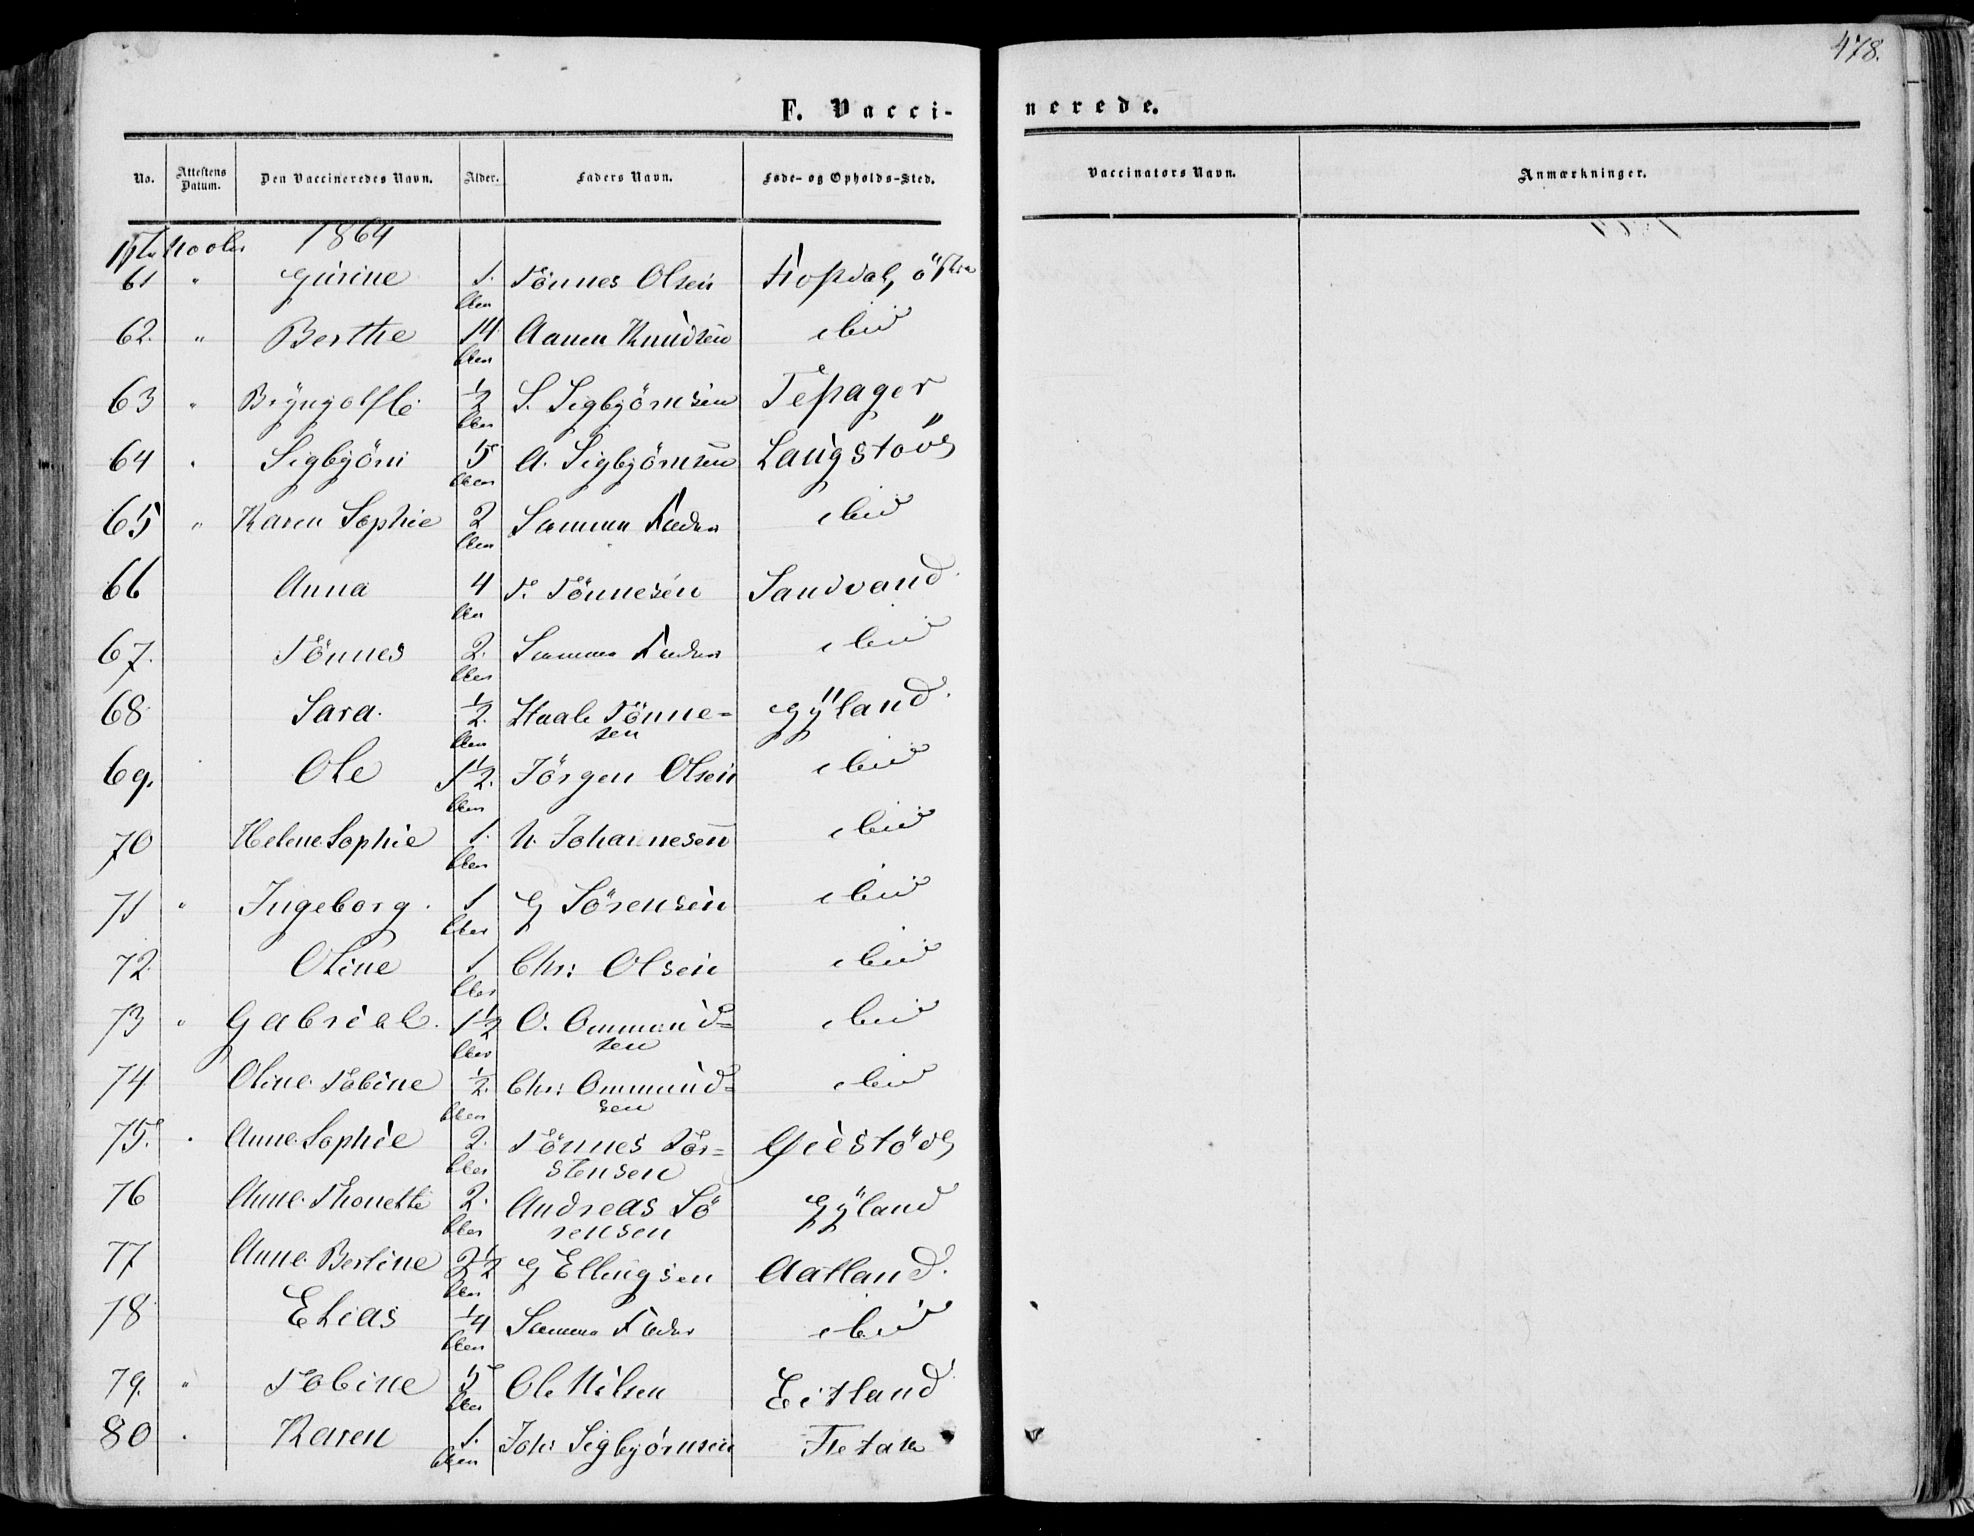 478.
F. Vaccinerede.
No. Attestens Datum. Den Vaccineredes Navn. Alder. Faders Navn. Føde- og Opholds-Sted. Vaccinators Navn. Anmærkninger.
1864
61 " Gurine 1. Tönnes Olsen
62. " Berthe 14 Aanen Knudsen ibid
63 " Bryngolf ½ S. Sigbjörnsen
64 " Sigbjörn 5 A. Sigbjörnsen
65 " Karen Sophie 2 Samme Fader ibid
66 Anna 4 T. Tönnesen Sandvand.
67. Tönnes 2. Samme Fader ibid
68 Sara. ½. Tönne=
sen Gÿland.
69. Ole 1½. Jörgen Olsen ibid
70 Helene Sophie 1. N. Johannesen ibid
71 " Ingeborg. 1 G Sörensen ibid
72. Oline 1 Chr: Olsen ibid
73 " Gabriel. 1½ O. Ommund=
sen ibid
74 Oline Tobine ½. Chr: Ommund=
sen ibid
75. " Anne Sophie 2. Tönnes Tor=
stensen
76 Anne Thonette 2. Andreas Sö
rensen Gÿland
77 Anne Bertine 2½ G Ellingsen Aatland.
78 Elias ¼ Samme Fader ibid
79. " Tobine 5 Ole Nilsen Eitland
80 " Karen 1. Joh: Sigbjørnsen